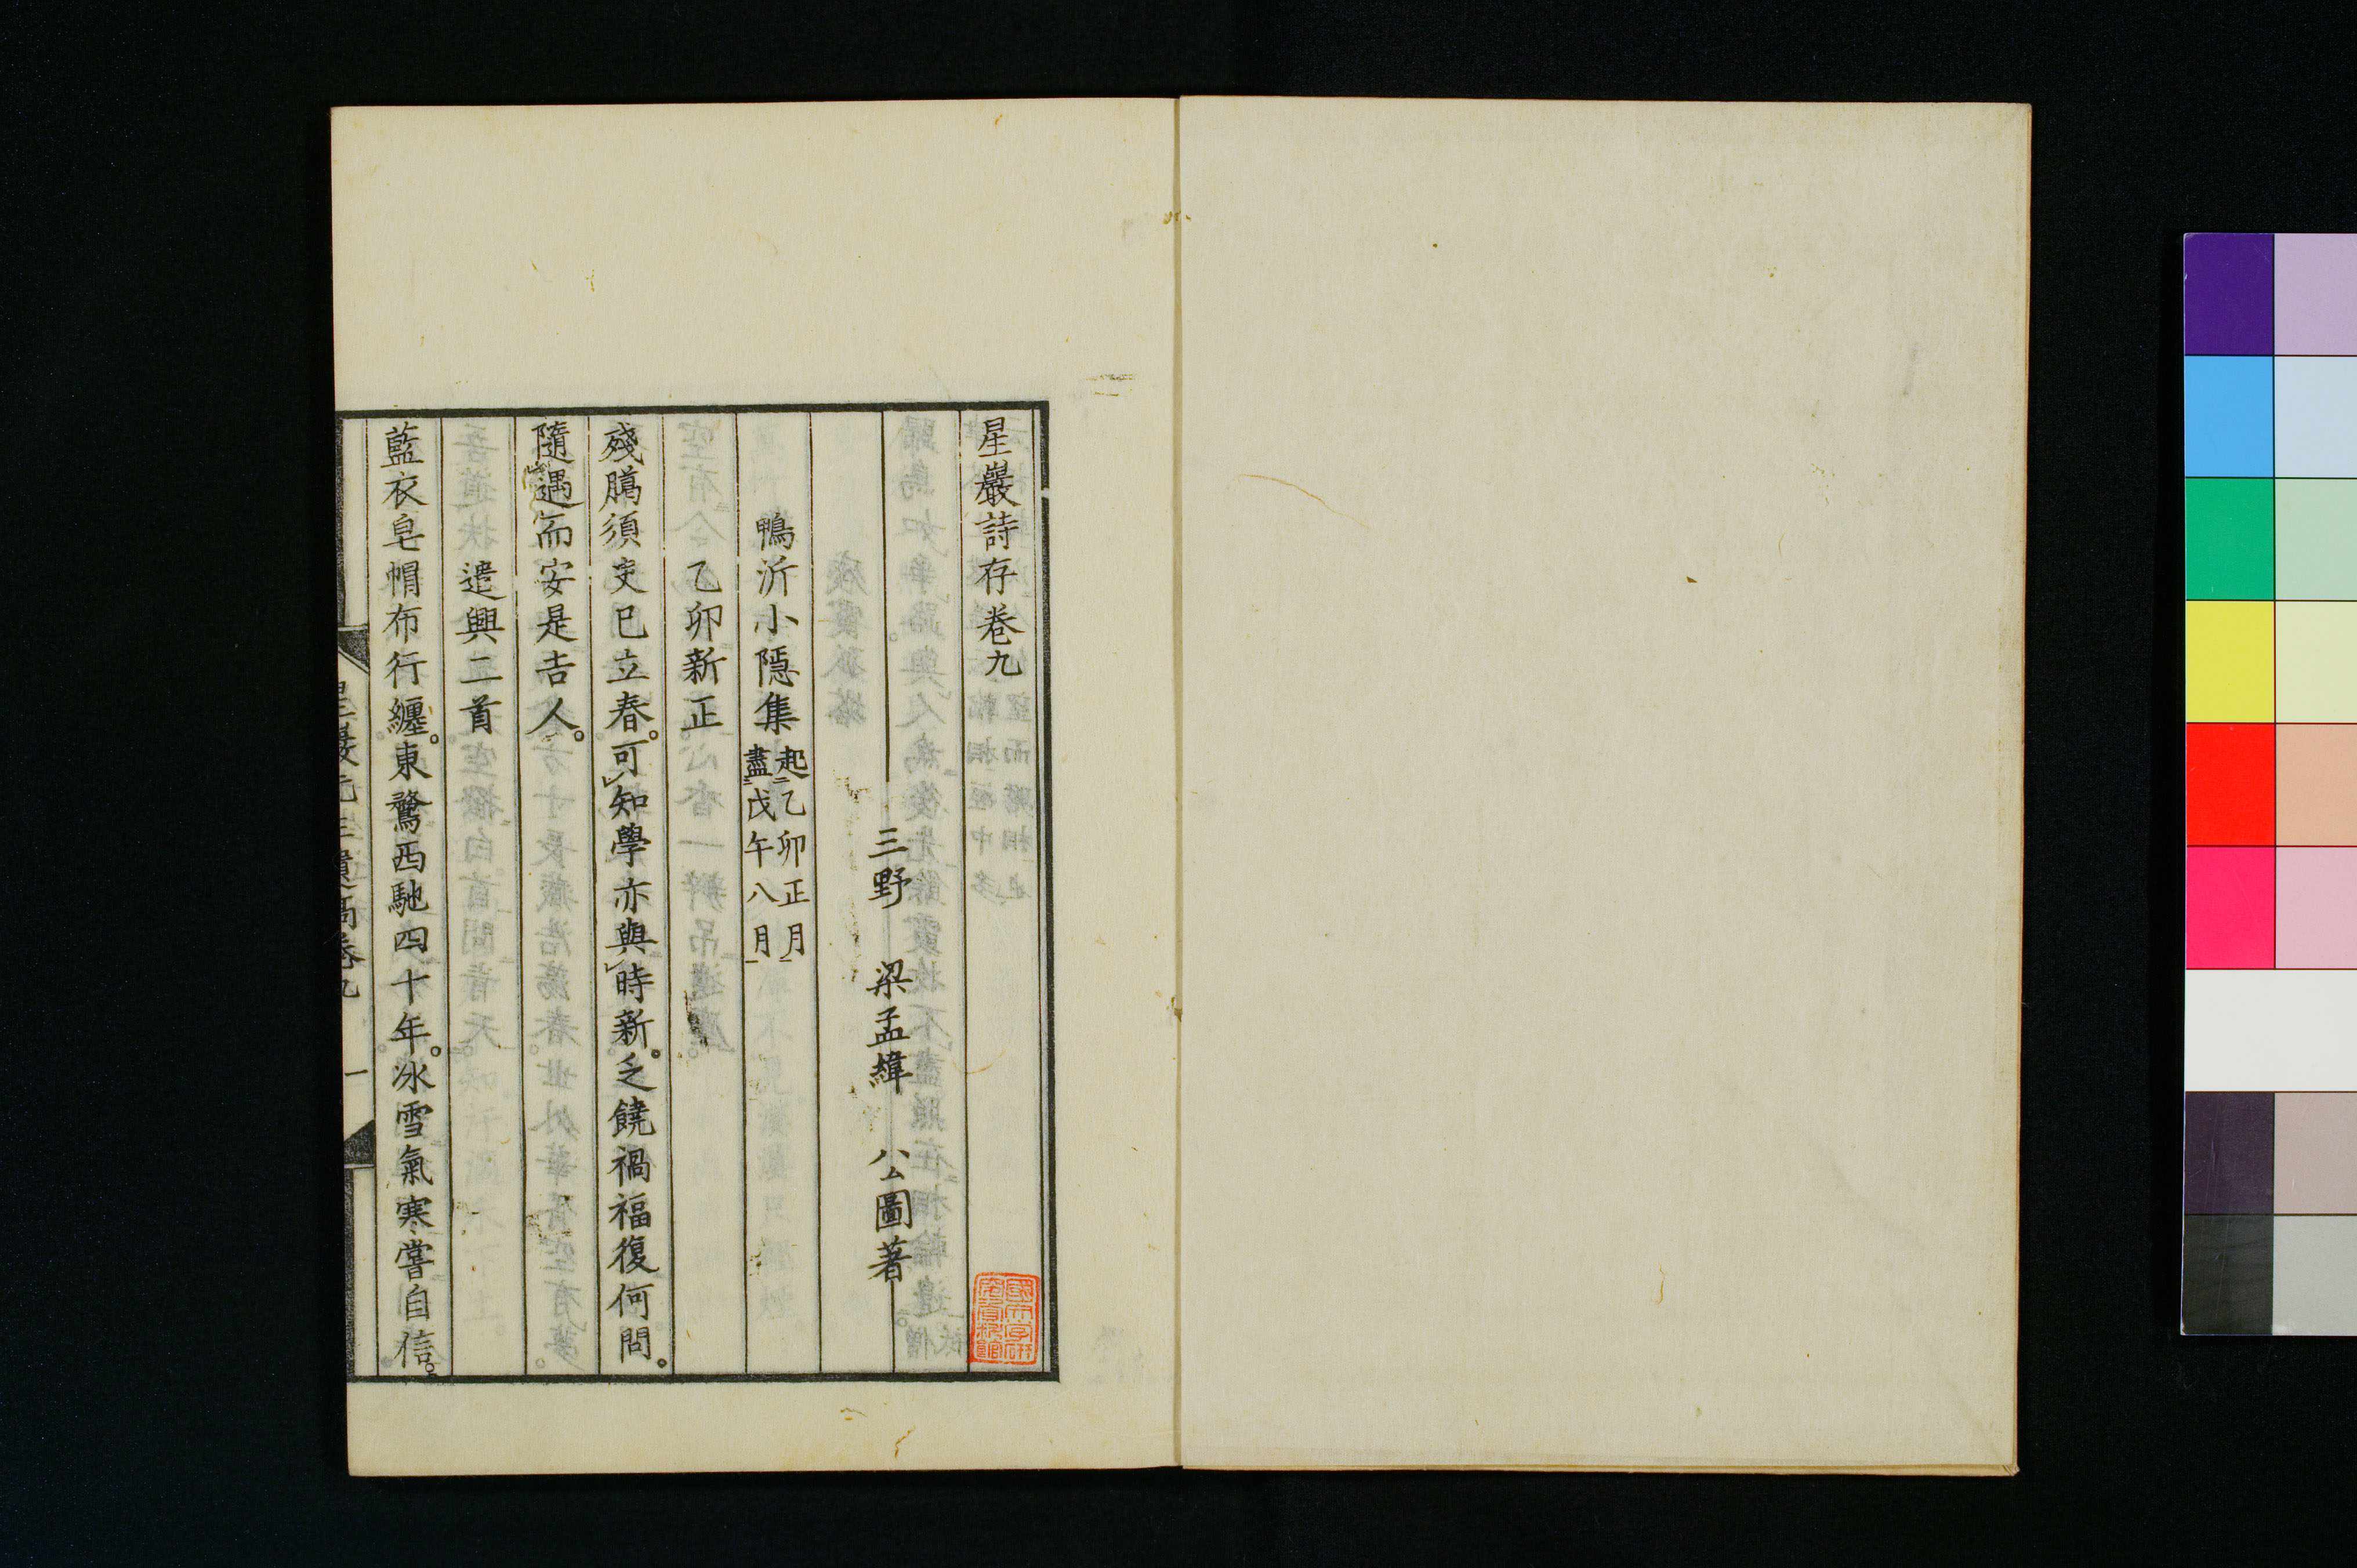 星巖詩存卷九
三野　梁孟緯　公圖著
鴨沂小隱集 起二乙卯正月一
盡二戊午八月一
乙卯新正
殘臈須臾已立春。可レ知學亦與レ時新。乏饒禍福復何問。
隨遇而安是吉人。
遣興二首
藍衣皂帽布行纏。東鶩西馳四十年。冰雪氣寒嘗自信。
星巖先生遺稿卷九 一